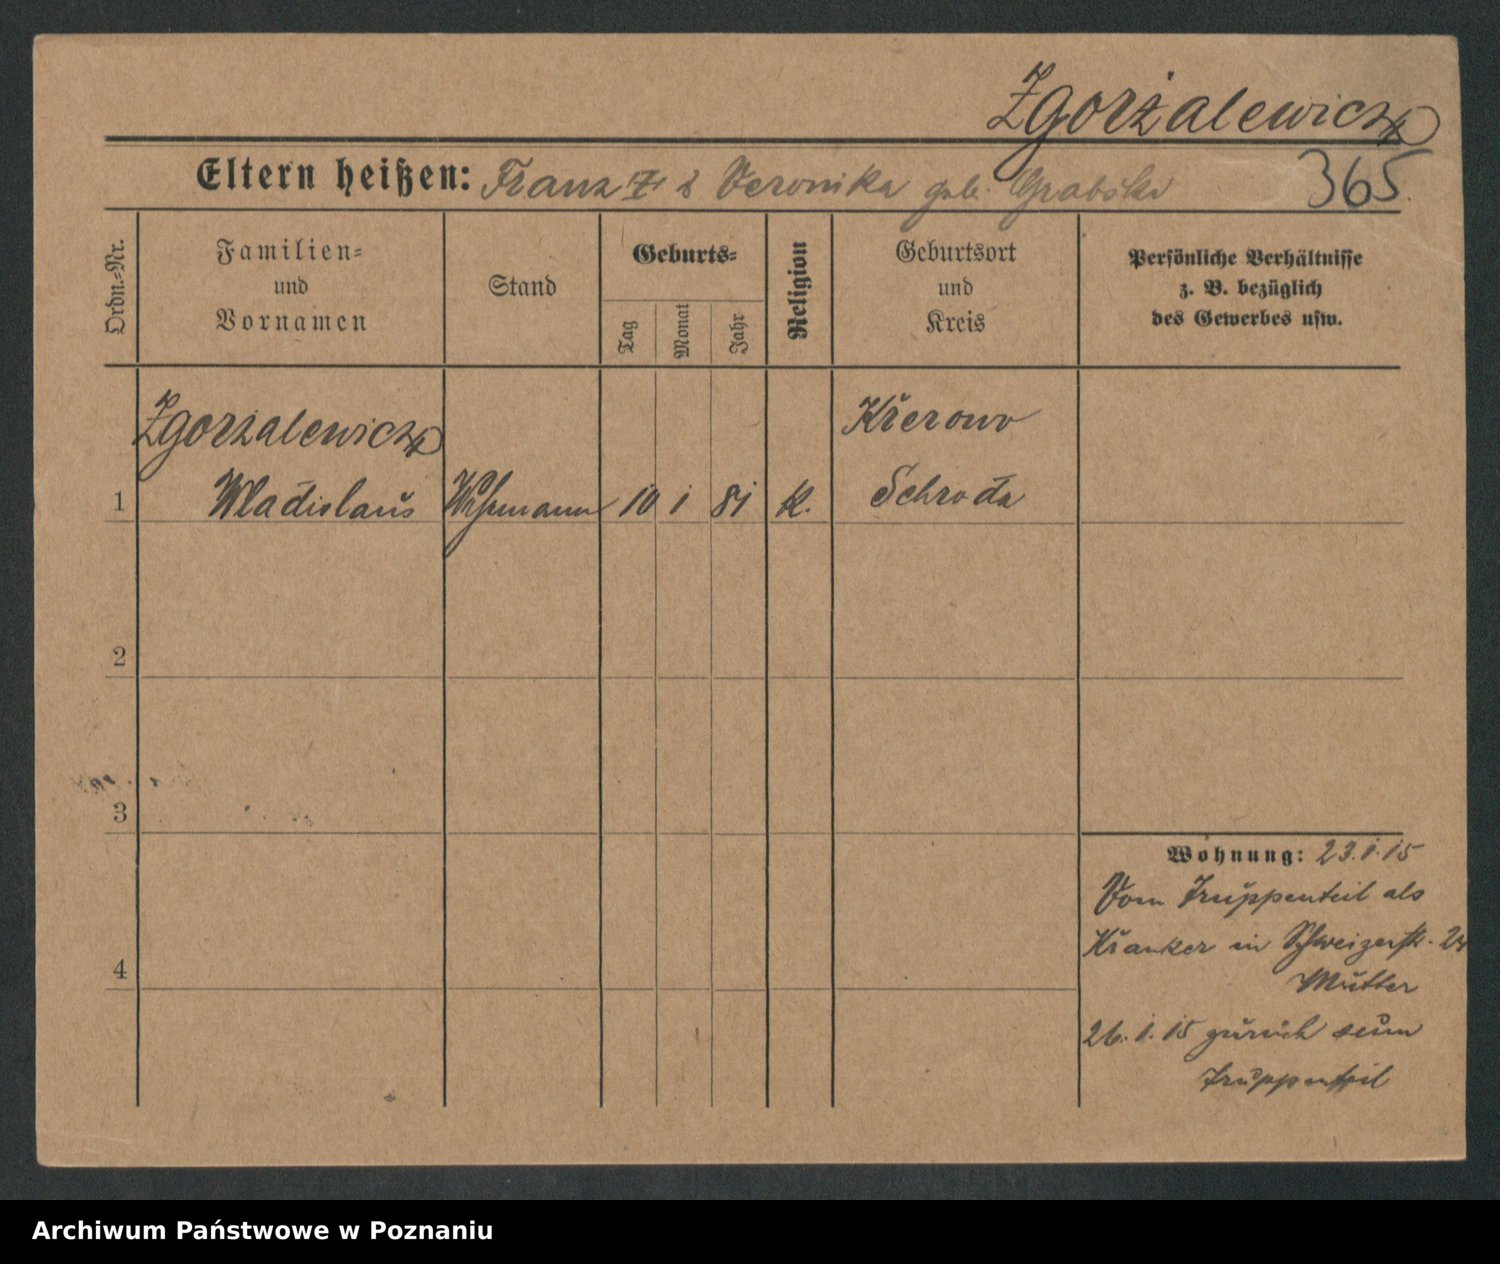 Zgorzalewicz
Eltern heißen: Franz Z. & Veronika geb. Grabska
365.
Ordn.=Nr.
Familien=
und
Vornamen
Stand
Geburts=
Tag
Monat
Jahr
Religion
Geburtsort
und
Kreis
Persönliche Verhältnisse
z. B. bezüglich
des Gewerbes usw.
Zgorzalewicz
Krerowo
1 Wladislaus Wehrmann 10 1 81 K. Schroda
2
3
4
Wohnung: 23.1.15
Vom Truppenteil als
Kranker in Schweizerstr. 24
Mutter
26.1.15 zurück zum
Truppenteil
Archiwum Państwowe w Poznaniu